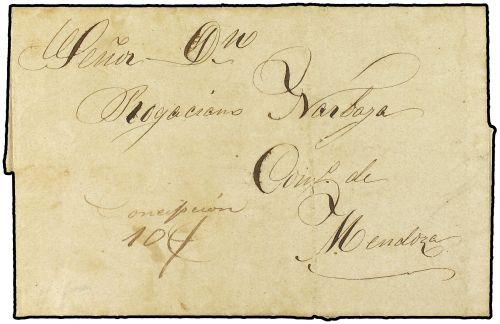 Señor Dn
Rogaciano Narbaja
Coins. de
Mendoza
Concepcion
10 ¢